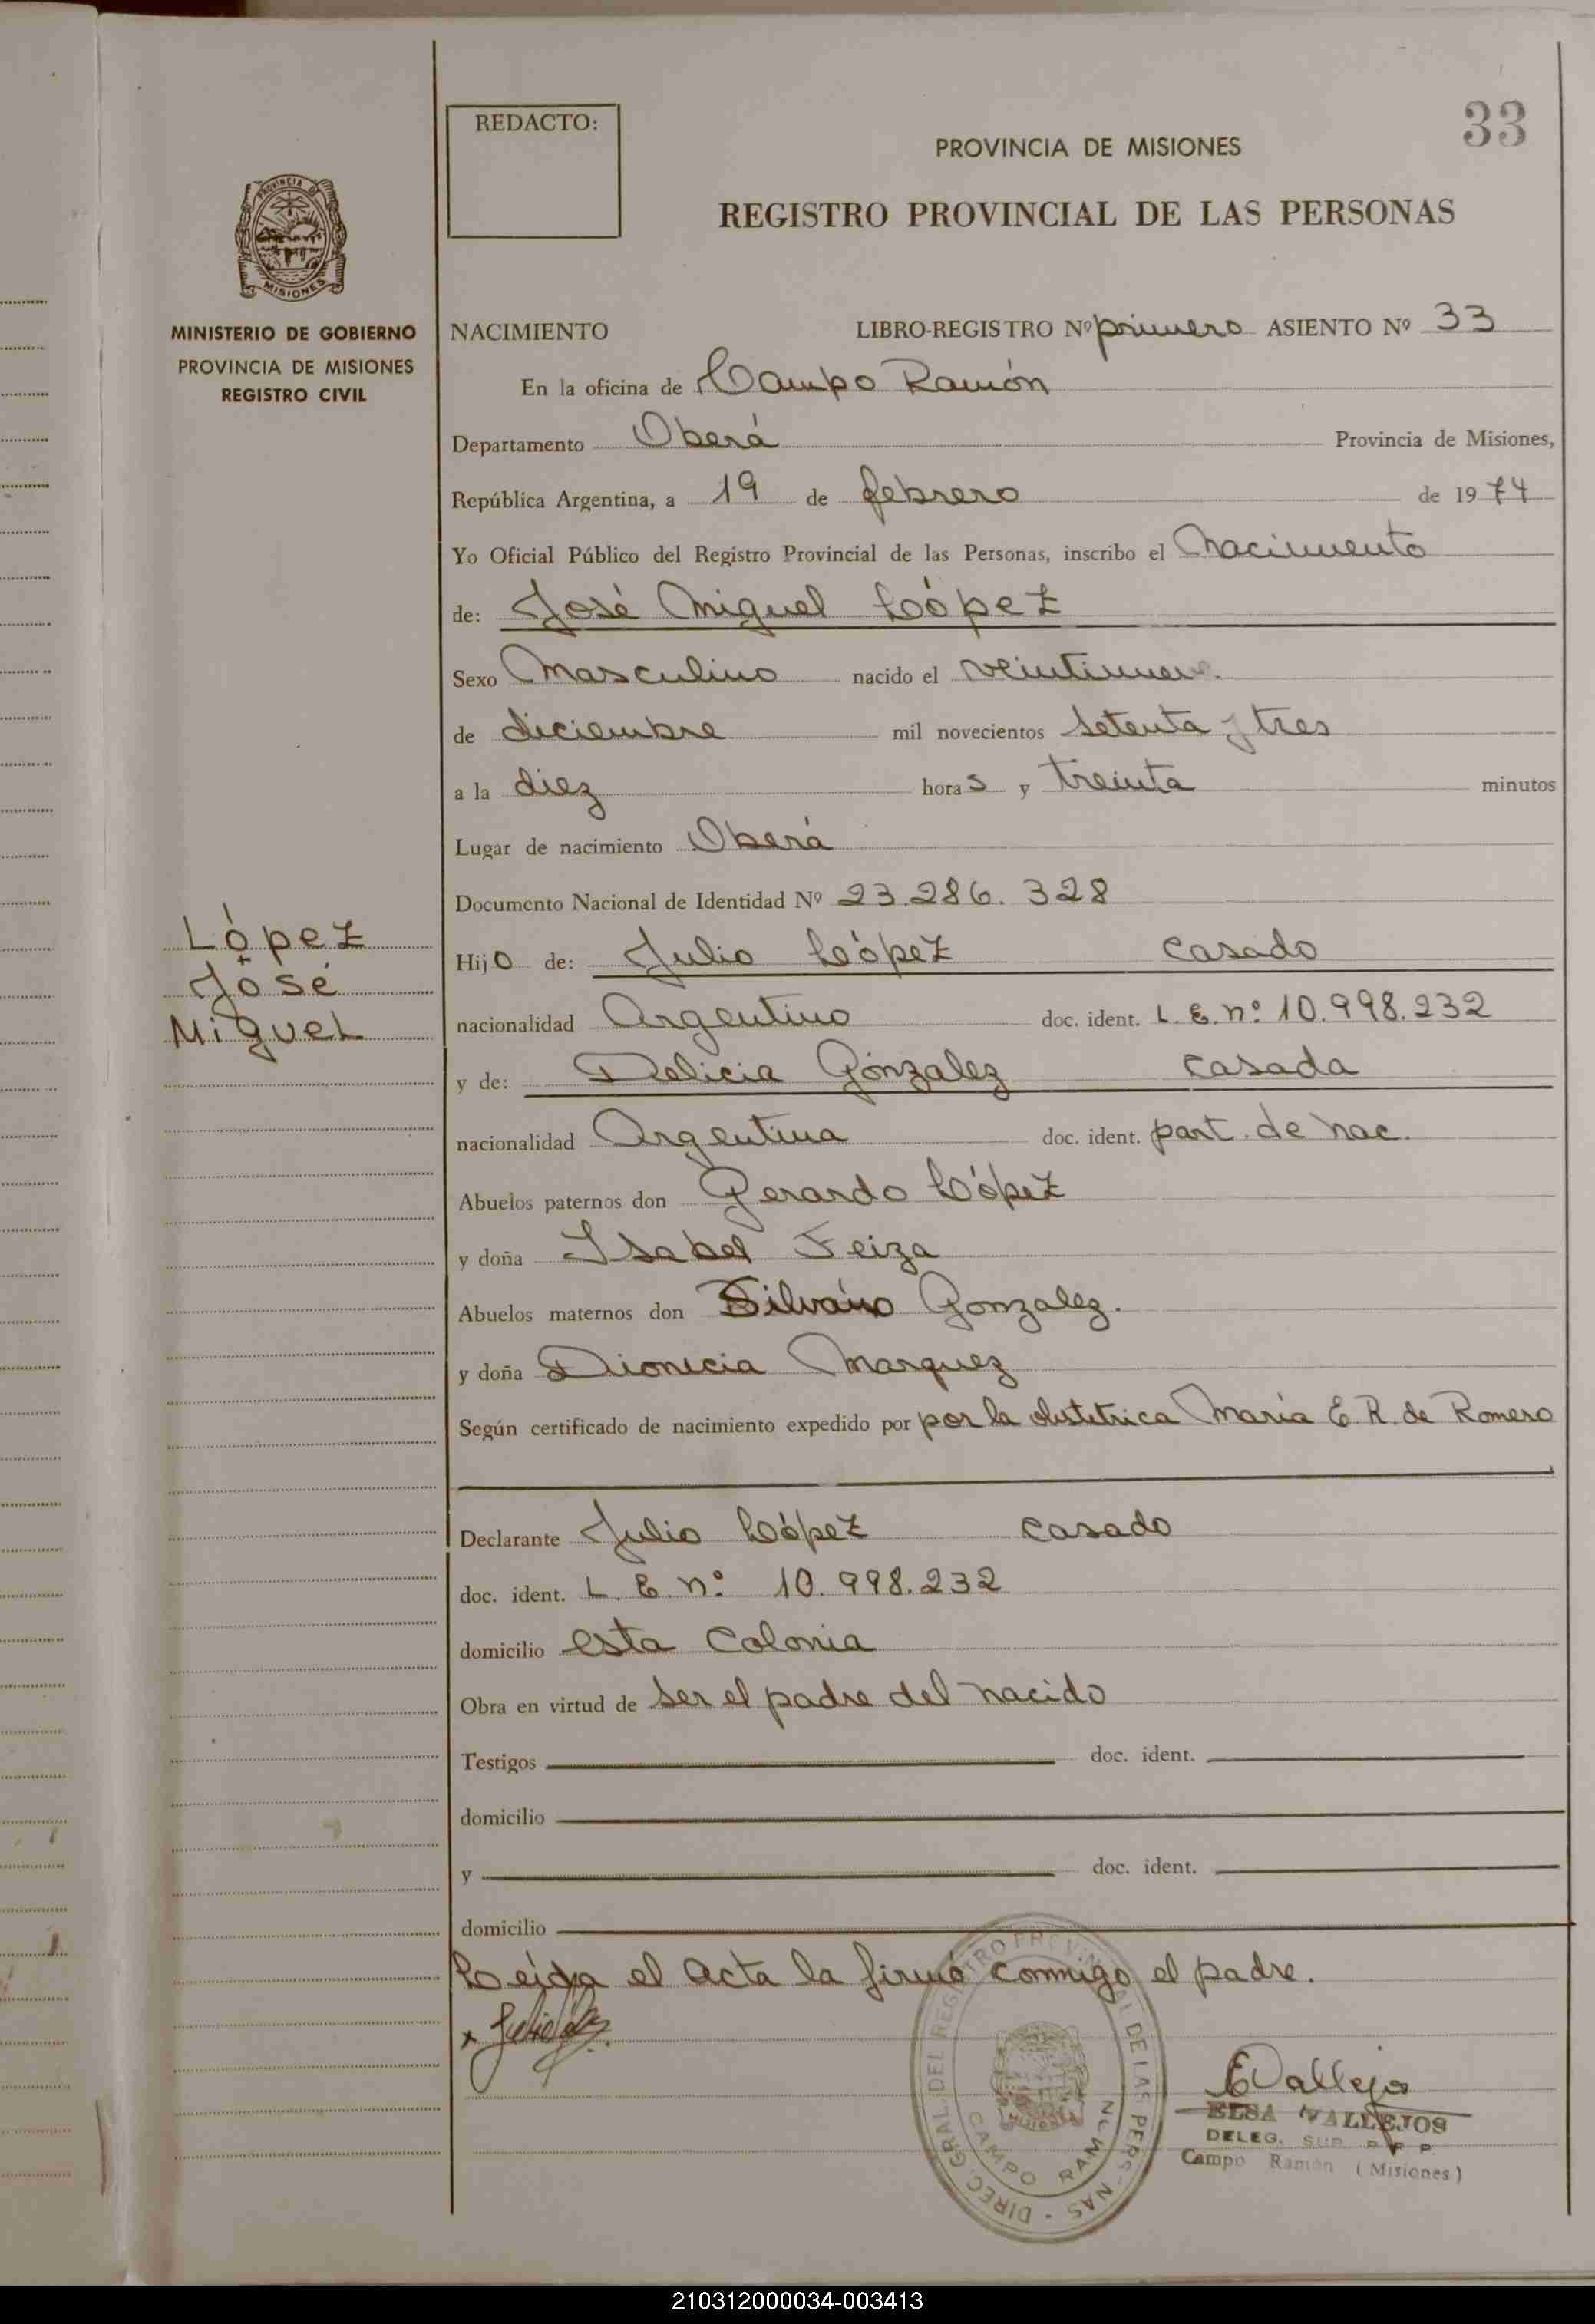 33
REDACTO:
PROVINCIA DE MISIONES
REGISTRO PROVINCIAL DE LAS PERSONAS
PROVINCIA DE
MISIONES
MINISTERIO DE GOBIERNO
PROVINCIA DE MISIONES
REGISTRO CIVIL
NACIMIENTO LIBRO-REGISTRO Nº primero ASIENTO Nº 33
En la oficina de Campo Ramón
Departamento Oberá Provincia de Misiones,
República Argentina, a 19 de febrero de 1974
Yo Oficial Público del Registro Provincial de las Personas, inscribo el Nacimiento
de: José Miguel López
Sexo Masculino nacido el
de diciembre mil novecientos setenta y tres
a la diez horas y treinta minutos
Lugar de nacimiento Oberá
Documento Nacional de Identidad Nº 23.286.328
López
José
Miguel
Hijo de: Julio López casado
nacionalidad Argentino doc. ident. L.E. nº 10.998.232
y de: Delicia Gónzalez casada
nacionalidad Argentina doc. ident. part. de nac.
Abuelos paternos don Gerardo López
y doña Isabel Feiza
Abuelos maternos don Silvano Gonzalez.
y doña Dionicia Marquez
Según certificado de nacimiento expedido por por la obstetrica María E. R. de Romero
Declarante Julio López casado
doc. ident. L. E. nº 10.998.232
domicilio esta Colonia
Obra en virtud de ser el padre del nacido
Testigos doc. ident.
domicilio
y doc. ident.
domicilio
Leída el acta la firmó conmigo el padre.
x Julio
DIREC. GRAL. DEL REGISTRO PROVINCIAL DE LAS PERSONAS
CAMPO RAMON
EVallejos
ELSA VALLEJOS
DELEG. SUP. R P P
Campo Ramón (Misiones)
210312000034-003413